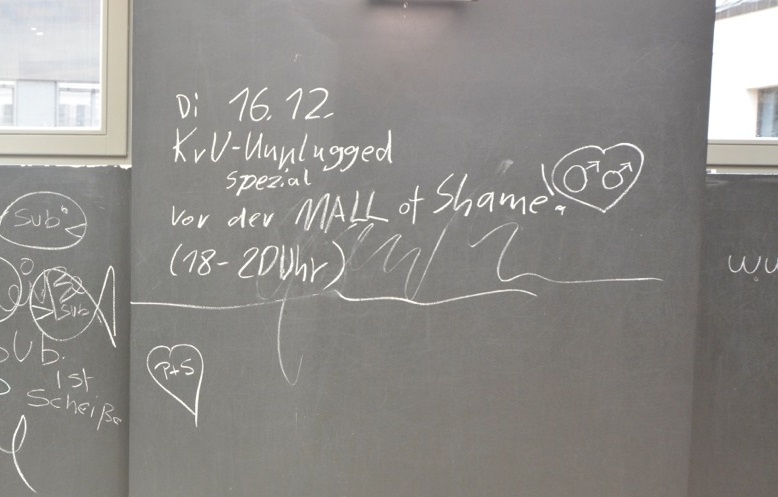 Di 16.12.
KvU-Unplugged
spezial
vor der MALL of Shame!
(18-20Uhr)
P+S
Sub
Sub
Sub.
ist
Scheiße